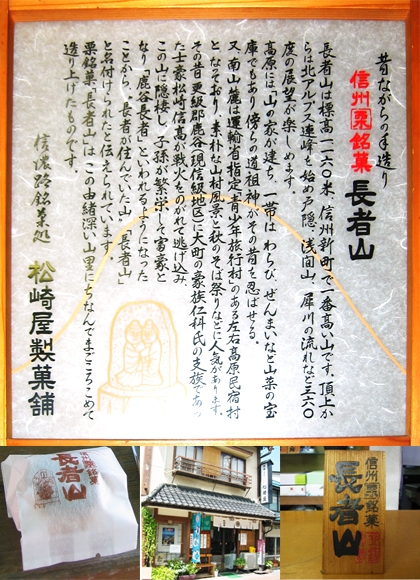 昔ながらの手造り
信州栗銘菓 長者山
長者山は標高一一六〇米、信州新町で一番高い山です。頂上か
らは北アルプス連峰を始め戸隠、浅間山、犀川の流れなど三六〇
度の展望が楽しめます。
高原には山の家が建ち、一帯は、わらび、ぜんまいなど山菜の宝
庫でもあり傍らの道祖神がその昔を忍ばせる。
又、南山麓は運輸省指定「青少年旅行村」のある左右高原民宿村
となっており、素朴な山村風景と秋のそば祭りなどに人気があります。
その昔、更級郡鹿谷(現信級地区)に大町の豪族仁科氏の支族であっ
た士豪松崎信高が戦火をのがれて逃げ込み
この山に隠棲し、子孫が繁栄して富豪と
なり「鹿谷長者」といわれるようになった
ことから、長者が住んでいた山・長者山」
と名付けられたと伝えられています。
栗銘菓「長者山」は、この由緒深い山里にちなんでまごころこめて
造り上げたものです。
信濃路銘菓処 松崎屋製菓舗
信州栗銘菓
長者山
信州栗銘菓
長者山